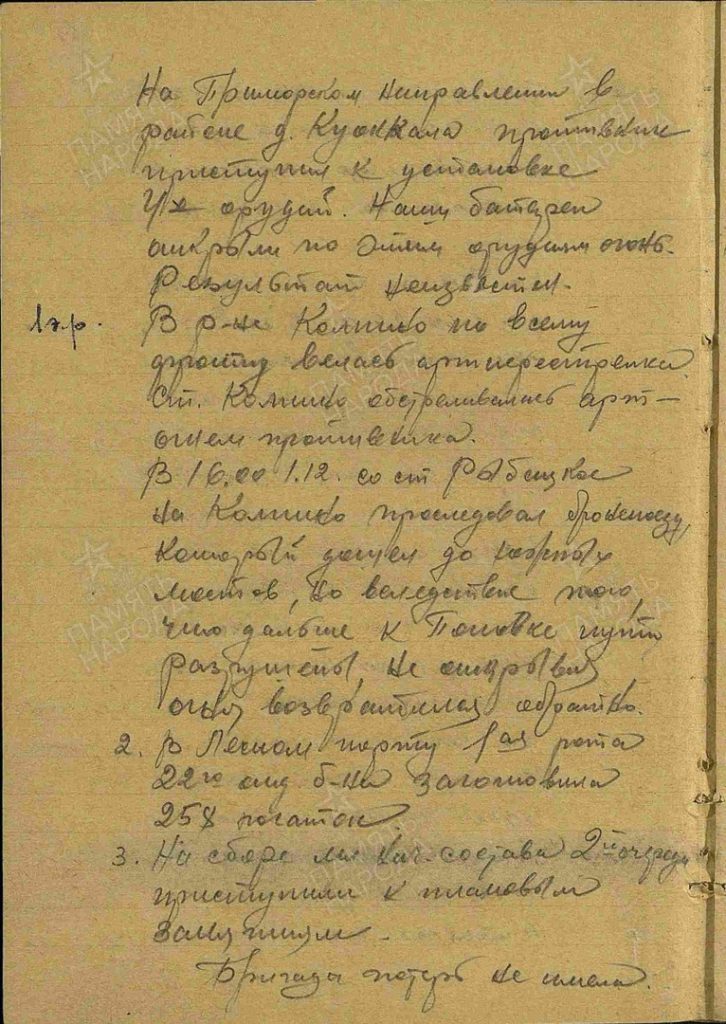 На Приморском направлении в
районе д. Куоккала противник
приступил к установке
4х орудий. Наши батареи
открыли по этим орудиям огонь.
Результат неизвестен.
1 э.р. В р-не Колпино по всему
фронту велась артперестрелка.
Ст. Колпино обстреливалась арт-
огнем противника.
В 16.00 1.12. со ст Рыбацкое
на Колпино проследовал бронепоезд,
который дошел до
мостов, но вследствие того,
что дальше к Поповке пути
разрушены, не открывая
огня возвратился обратно.
2. В Лесном порту 1ая рота
22го б-на заготовила
258
3. На сборе мл. нач. состава 2й очереди
приступили к плановым
занятиям.
Бригада потерь не имела.
ПАМЯТЬ
НАРОДА